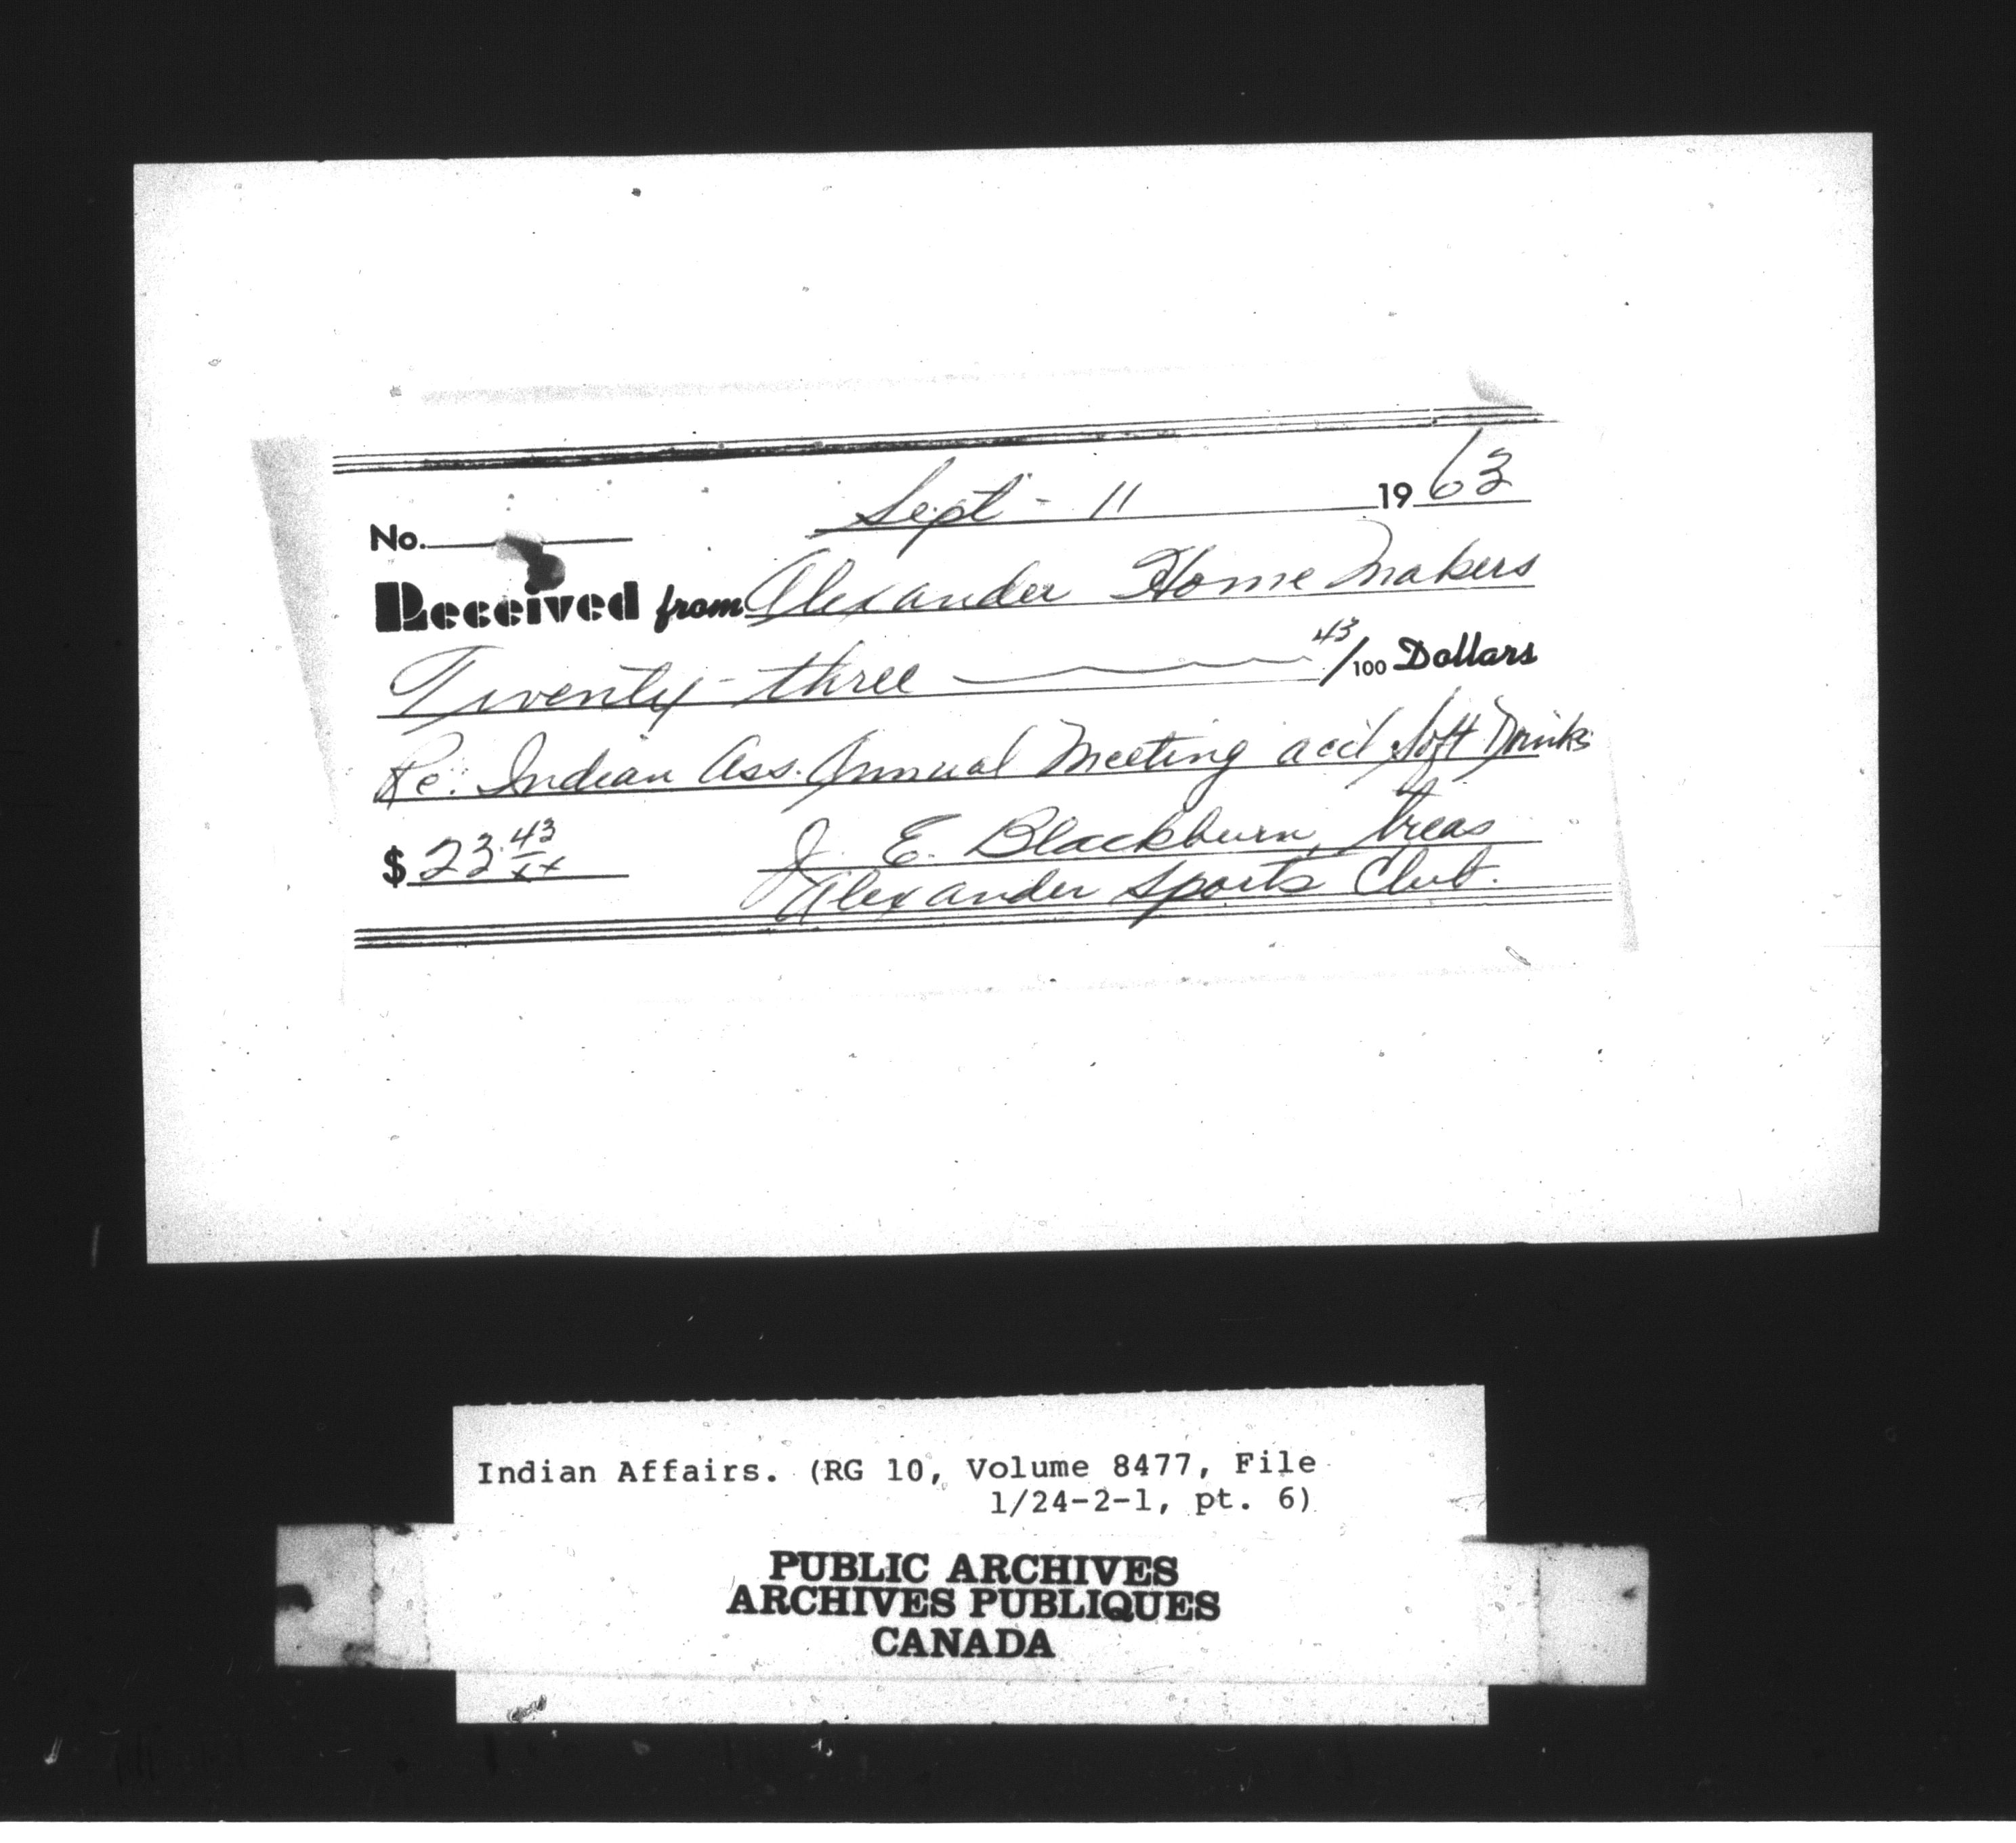 Sept - 11 1963
No.
Received from Alexander Home Makers
Twenty-three 43/100 Dollars
Re: Indian Ass. Annual Meeting acc't Soft Drinks
$23.43/xx J. E. Blackburn, treas
Alexander Sports Club.
Indian Affairs. (RG 10, Volume 8477, File
1/24-2-1, pt. 6)
PUBLIC ARCHIVES
ARCHIVES PUBLIQUES
CANADA